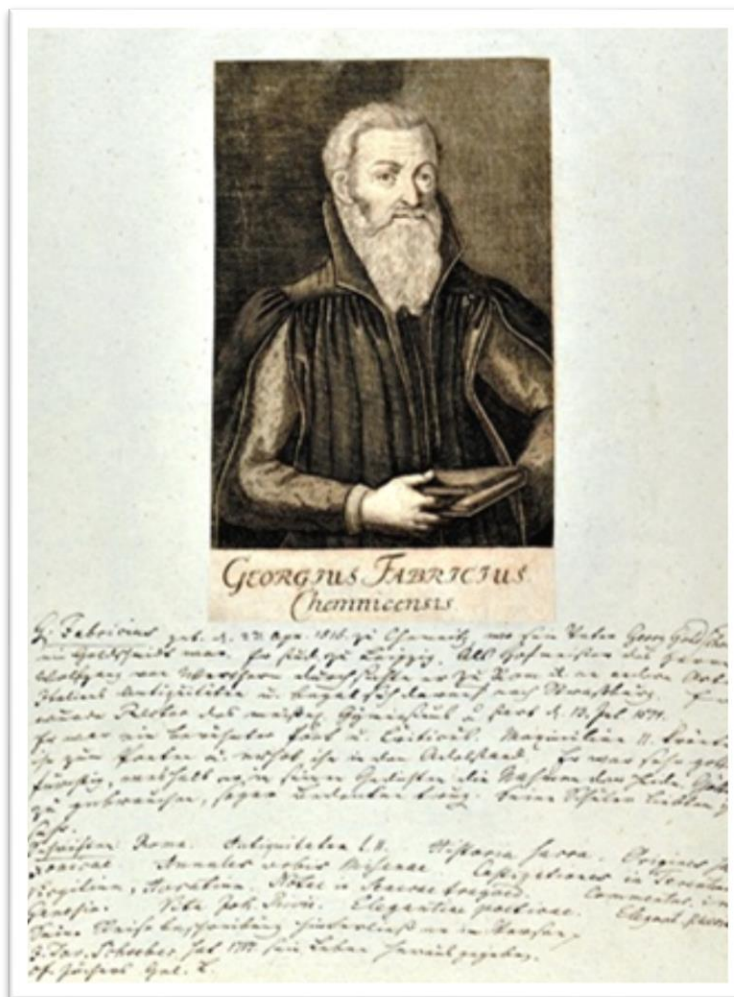 GEORGIUS FABRICIUS
Chemnicensis
G. Fabricius geb. d. 23 Apr. 1516. zu Chemnitz, wo sein Vater Georg
ein Goldschmidt war. Er stud. zu Leipzig. Als Hofmeister des Herrn
Wolfgang von Werthern durchsuchte er zu Rom u. an andern
Italiens Antiquitäten u. begab sich darauf nach Strasburg. Er
wurde Rector des Gymnasiums u. starb d. 13. Jul. 1571.
Er war ein berühmter Poet u. Criticus. Maximilian II. krönte
ihn zum Poeten u. erhob ihn in den Adelstand. Er war sehr
fürchtig, weshalb er in seinen Gedichten die Nahmen der
zu gebrauchen, sogar Bedenken trug. Seine Schüler liebten
Schriften: Roma. Antiquitates l. II. Historia sacra. Origines
Annales urbis Misenae. Castigationes in
Virgilium, Horatium. Notae in Senecae tragoed. Commentar. in
Genesin. Vita Joh. Rivii. Elegantiae poeticae. Elegant.
Seine Reisebeschreibung hinterließ er in Versen
Schreber hat 1717 sein Leben herausgegeben.
cf. Jöchers Gel. L.